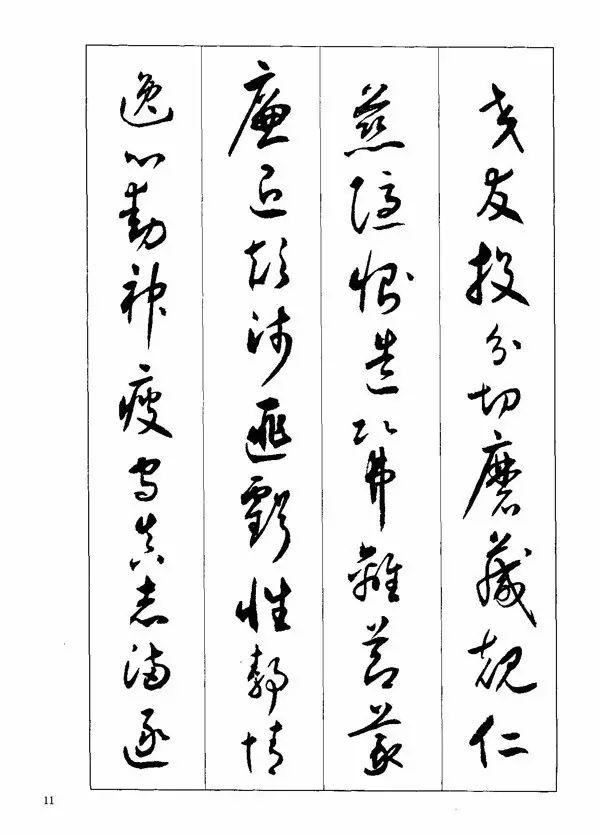 交友投分切磨箴規仁
慈隱惻造次弗離節義
廉退顛沛匪虧性靜情
逸心動神疲守真志滿逐
11